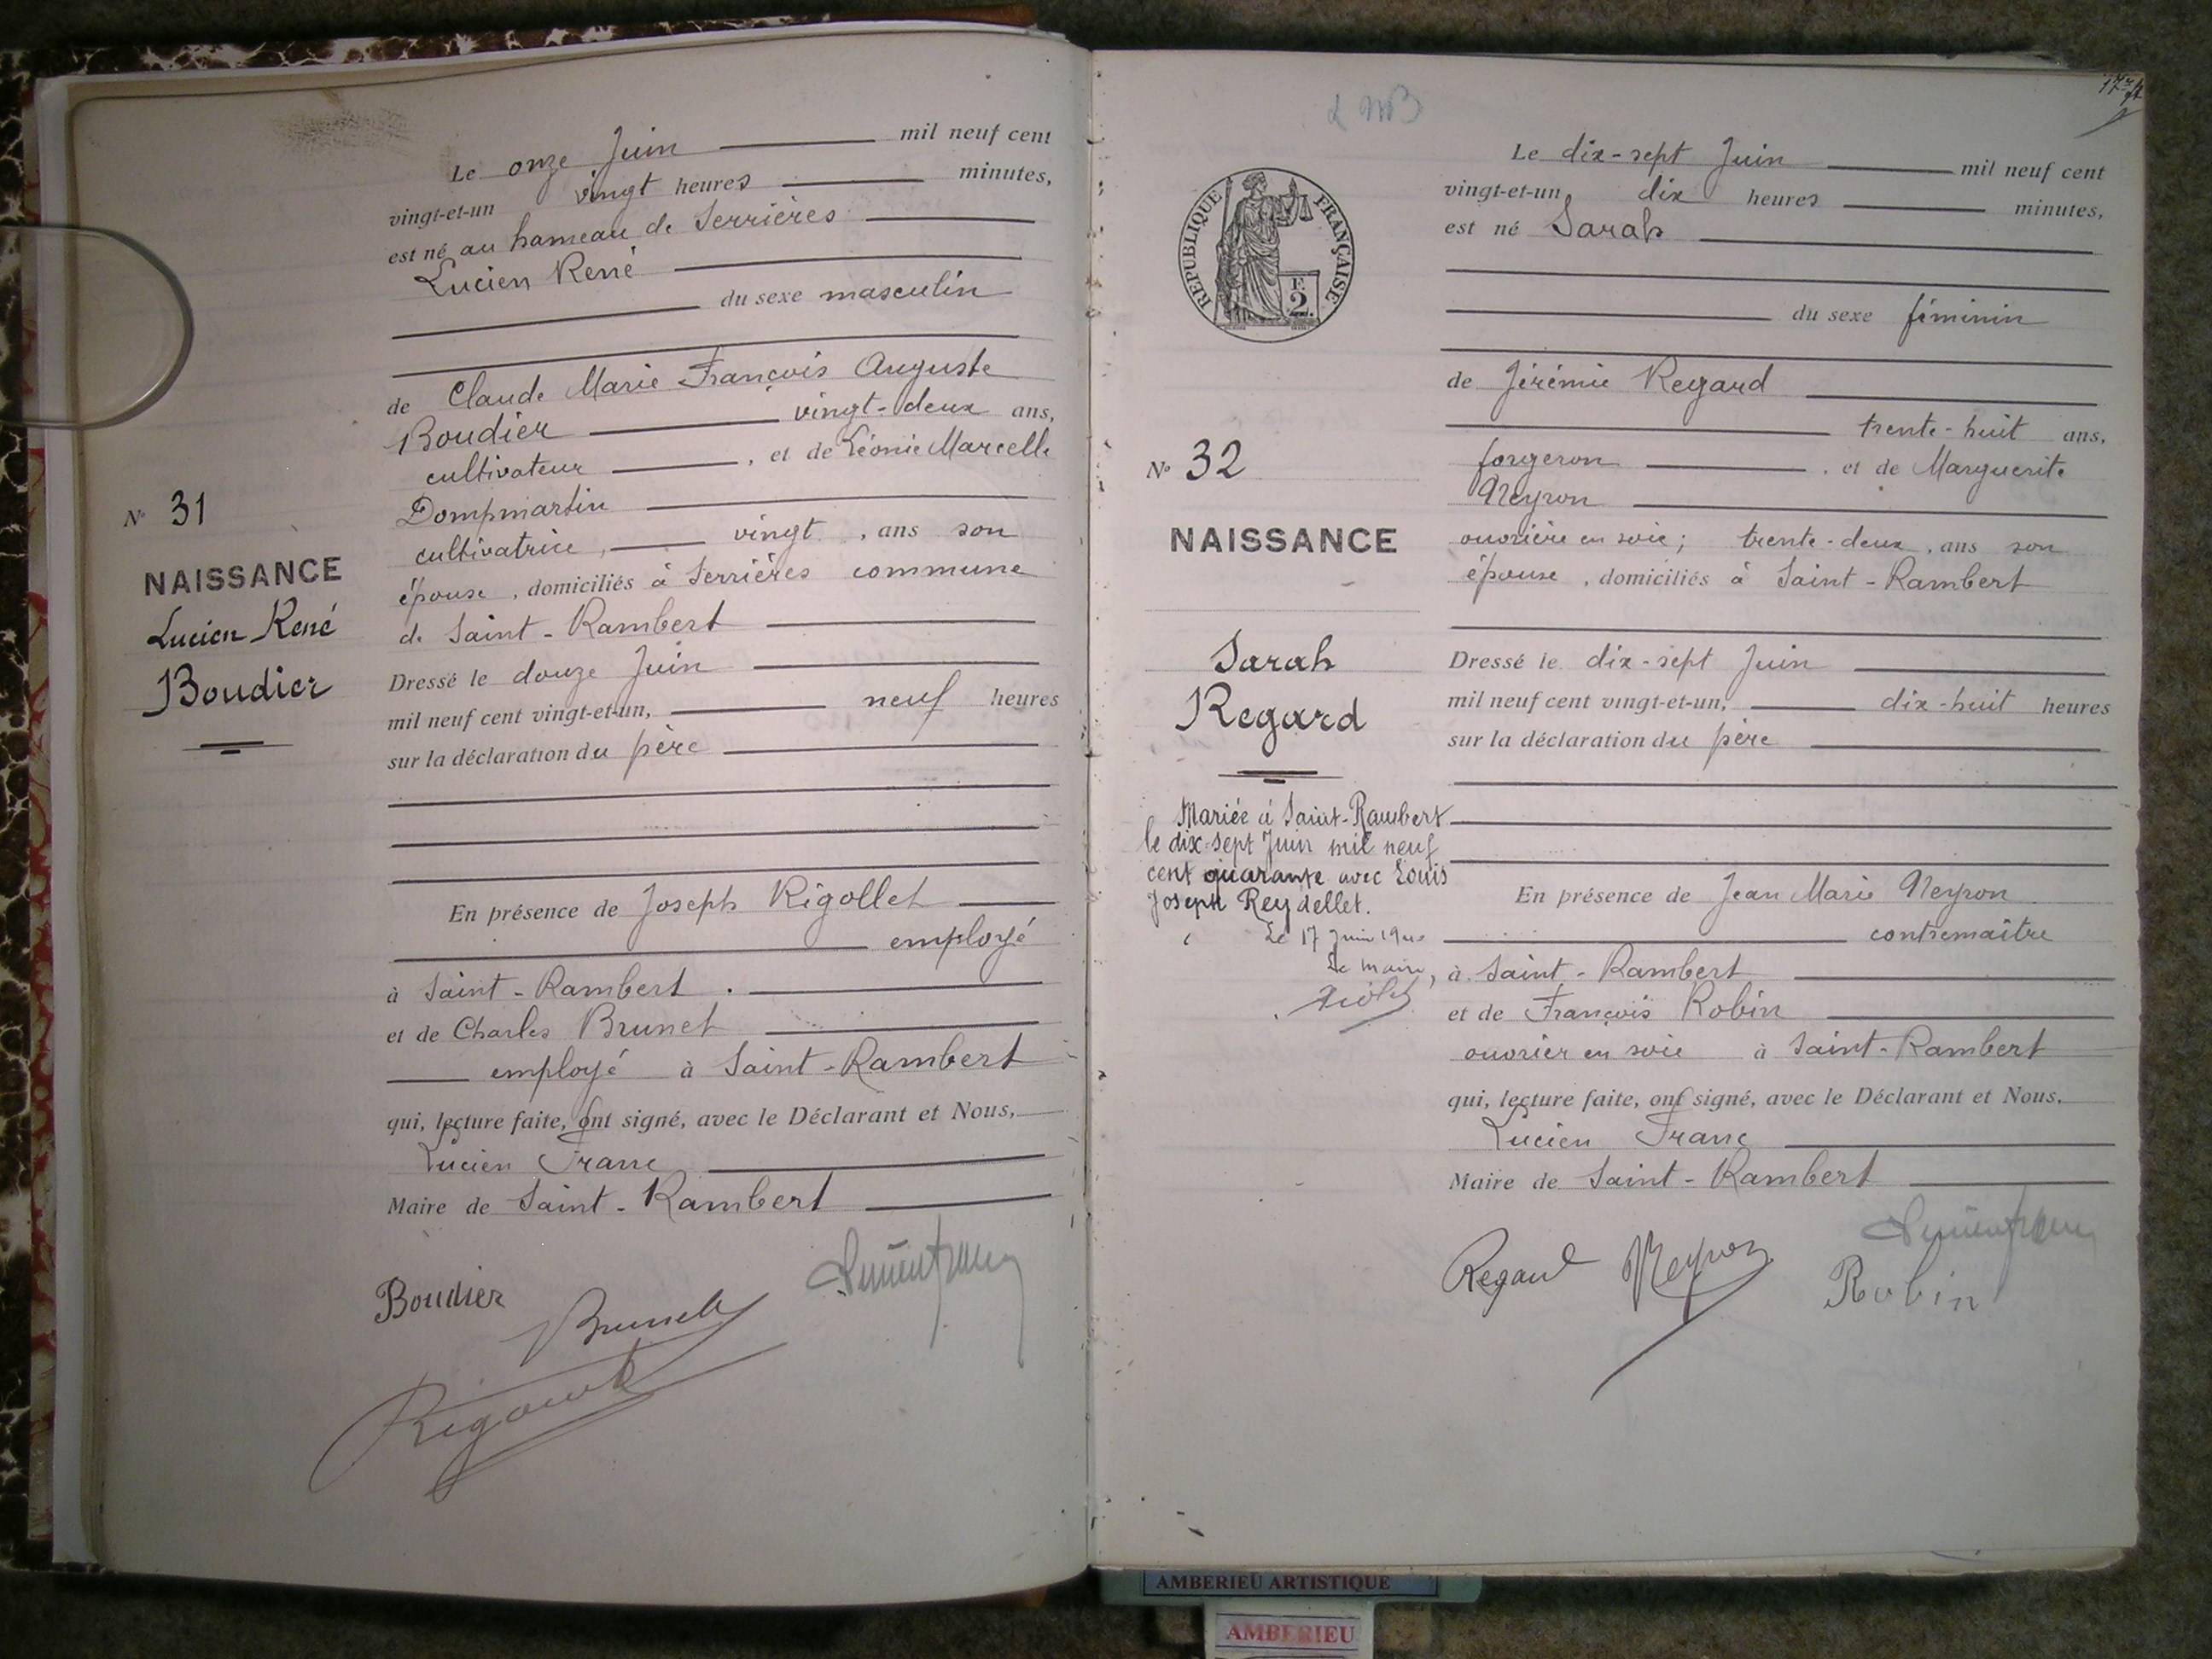 Le onze Juin mil neuf cent
vingt-et-un vingt heures minutes,
est né au hameau de Serrières
Lucien René
du sexe masculin
de Claude Marie François Auguste
Boudier vingt-deux ans,
cultivateur , et de Léonie Marcelle
Dompmartin
cultivatrice, vingt , ans son
épouse , domiciliés à Serrières commune
de Saint-Rambert
Dressé le douze Juin
mil neuf cent vingt-et-un, neuf heures
sur la déclaration du père
En présence de Joseph Rigollet
employé
à Saint-Rambert .
et de Charles Brunet
employé à Saint-Rambert
qui, lecture faite, ont signé, avec le Déclarant et Nous,
Lucien Franc
Maire de Saint-Rambert
Boudier
Brunet
N° 31
NAISSANCE
Lucien René
Boudier
RÉPUBLIQUE FRANÇAISE
F.
2.
N° 32
NAISSANCE
Sarah
Regard
Mariée à Saint-Rambert
le dix-sept Juin mil neuf
cent quarante avec Louis
Joseph Reydellet.
Le 17 Juin
Le maire,
Le dix-sept Juin mil neuf cent
vingt-et-un, dix heures minutes,
est né Sarah
du sexe féminin
de Jérémie Regard
trente-huit ans,
forgeron , et de Marguerite
Neyron
ouvrière en soie; trente-deux , ans son
épouse , domiciliés à Saint-Rambert
Dressé le dix-sept Juin
mil neuf cent vingt-et-un, dix-huit heures
sur la déclaration du père
En présence de Jean Marie Neyron
contremaître
à Saint-Rambert
et de François Robin
ouvrier en soie à Saint-Rambert
qui, lecture faite, ont signé, avec le Déclarant et Nous,
Lucien Franc
Maire de Saint-Rambert
Regard Neyron
Robin
AMBERIEU ARTISTIQUE
AMBERIEU